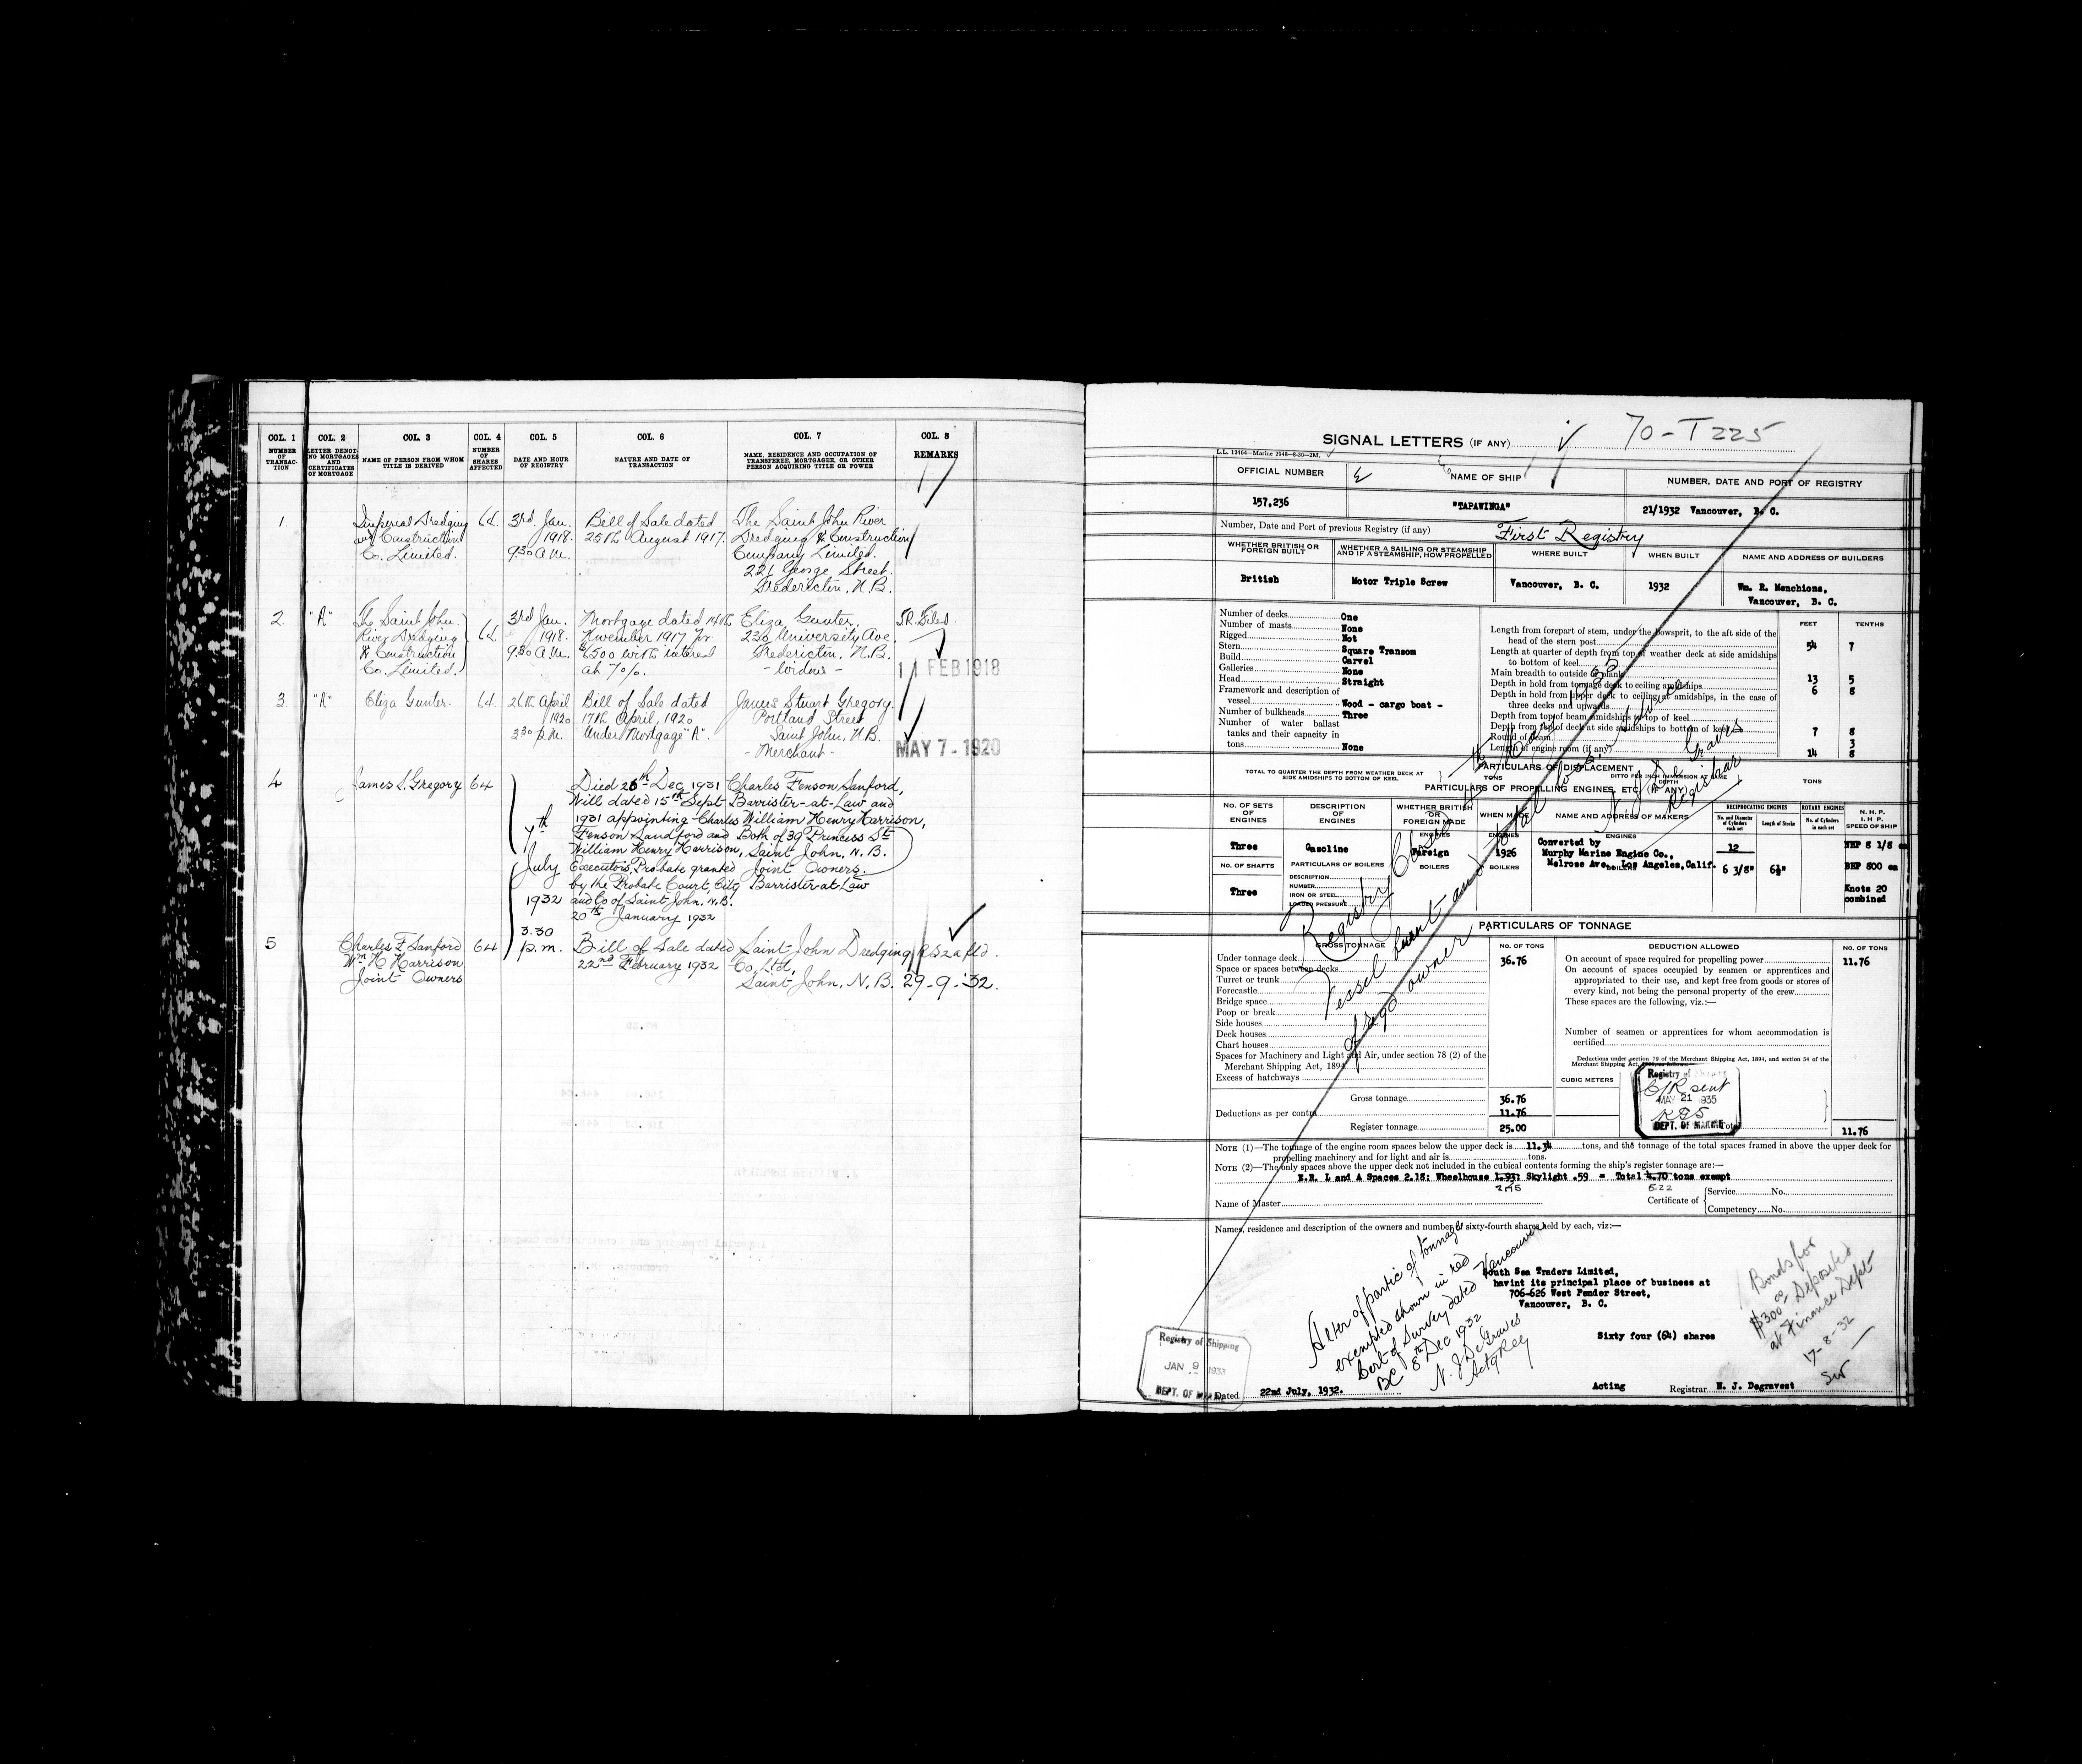 COL. 1
NUMBER
OF
TRANSAC-
TION
COL. 2
LETTER DENOT-
ING MORTGAGES
AND
CERTIFICATES
OF MORTGAGE
COL. 3
NAME OF PERSON FROM WHOM
TITLE IS DERIVED
COL. 4
NUMBER
OF
SHARES
AFFECTED
COL. 5
DATE AND HOUR
OF REGISTRY
COL. 6
NATURE AND DATE OF
TRANSACTION
COL. 7
NAME, RESIDENCE AND OCCUPATION OF
TRANSFEREE, MORTGAGEE, OR OTHER
PERSON ACQUIRING TITLE OR POWER
COL. 8
REMARKS
1.
Imperial Dredging
and Construction
Co. Limited.
64.
3rd Jan.
1918.
9.30 A.M.
Bill of Sale dated
25th August 1917.
The Saint John River
Dredging & Construction
Company Limited.
221 George Street.
Fredericton, N.B.
2.
"A"
The Saint John
River Dredging
& Construction
Co. Limited.
64.
3rd Jan.
1918.
9.30 A.M.
Mortgage dated 14th
November 1917 for
$6500 with interest
at 7%.
Eliza Gunter,
230 University Ave.
Fredericton, N.B.
- Widow -
11 FEB 1918
3.
"A"
Eliza Gunter.
64.
26th April
1920
2.30 p.m.
Bill of Sale dated
17th April, 1920
Under Mortgage "A".
James Stuart Gregory.
Portland Street
Saint John, N.B.
- Merchant -
MAY 7 - 1920
4
James S. Gregory
64
7th
July
1932
3.30
p.m.
Died 26th Dec 1931
Will dated 15th Sept
1931 appointing Charles
Fenson Sandford and
William Henry Harrison,
Executors, Probate granted
by the Probate Court, City
and Co of Saint John, N.B.
20th January 1932
Charles Fenson Sanford,
Barrister-at-Law and
William Henry Harrison,
Both of 39 Princess St
Saint John, N.B.
Joint Owners.
Barrister-at-Law
5
Charles F Sanford
Wm H Harrison
Joint Owners
64
Bill of Sale dated
22nd February 1932
Saint John Dredging
Co. Ltd,
Saint John, N.B.
29-9-'32.
SIGNAL LETTERS (IF ANY)
70-T225
L.L. 12464—Marine 2948—8-30—2M.
OFFICIAL NUMBER
NAME OF SHIP
NUMBER, DATE AND PORT OF REGISTRY
157,236
"TAPAWINGA"
21/1932 Vancouver, B. C.
Number, Date and Port of previous Registry (if any)
First Registry
WHETHER BRITISH OR
FOREIGN BUILT
WHETHER A SAILING OR STEAMSHIP
AND IF A STEAMSHIP, HOW PROPELLED
WHERE BUILT
WHEN BUILT
NAME AND ADDRESS OF BUILDERS
British
Motor Triple Screw
Vancouver, B. C.
1932
Wm. R. Menchions,
Vancouver, B. C.
Number of decks One
Number of masts None
Rigged Not
Stern Square Transom
Build Carvel
Galleries None
Head Straight
Framework and description of
vessel Wood - cargo boat -
Number of bulkheads Three
Number of water ballast
tanks and their capacity in
tons None
FEET
TENTHS
Length from forepart of stem, under the bowsprit, to the aft side of the
head of the stern post 54 7
Length at quarter of depth from top of weather deck at side amidships
to bottom of keel
Main breadth to outside of plank 13 5
Depth in hold from tonnage deck to ceiling amidships 6 8
Depth in hold from upper deck to ceiling at amidships, in the case of
three decks and upwards
Depth from top of beam amidships to top of keel
Depth from top of deck at side amidships to bottom of keel 7 8
Round of beam 3
Length of engine room (if any) 14 8
PARTICULARS OF DISPLACEMENT
TOTAL TO QUARTER THE DEPTH FROM WEATHER DECK AT
SIDE AMIDSHIPS TO BOTTOM OF KEEL
TONS
DITTO PER INCH IMMERSION AT SAME
DEPTH
TONS
PARTICULARS OF PROPELLING ENGINES, ETC. (IF ANY)
NO. OF SETS
OF
ENGINES
DESCRIPTION
OF
ENGINES
WHETHER BRITISH
OR
FOREIGN MADE
WHEN MADE
NAME AND ADDRESS OF MAKERS
RECIPROCATING ENGINES
ROTARY ENGINES
No. and Diameter
of Cylinders
each set
Length of Stroke
No. of Cylinders
in each set
N. H. P.
I. H. P.
SPEED OF SHIP
Three
Gasoline
ENGINES
Foreign
ENGINES
1926
ENGINES
Converted by
Murphy Marine Engine Co.,
Melrose Ave., Los Angeles, Calif.
12
6 3/8"
6½"
NHP 8 1/8 ea
BHP 800 ea
Knots 20
combined
NO. OF SHAFTS
PARTICULARS OF BOILERS
BOILERS
BOILERS
BOILERS
Three
DESCRIPTION
NUMBER
IRON OR STEEL
LOADED PRESSURE
Registry Closed
Vessel burnt and total loss, Advice
of reg'd owner
N. J. De Graves
Registrar
PARTICULARS OF TONNAGE
GROSS TONNAGE
NO. OF TONS
DEDUCTION ALLOWED
NO. OF TONS
Under tonnage deck 36.76
Space or spaces between decks
Turret or trunk
Forecastle
Bridge space
Poop or break
Side houses
Deck houses
Chart houses
Spaces for Machinery and Light and Air, under section 78 (2) of the
Merchant Shipping Act, 1894
Excess of hatchways
Gross tonnage 36.76
Deductions as per contra 11.76
Register tonnage 25.00
On account of space required for propelling power 11.76
On account of spaces occupied by seamen or apprentices and
appropriated to their use, and kept free from goods or stores of
every kind, not being the personal property of the crew
These spaces are the following, viz.:—
Number of seamen or apprentices for whom accommodation is
certified
Deductions under section 79 of the Merchant Shipping Act, 1894, and section 54 of the
CUBIC METERS
Registry of Shipping
C/R sent
MAY 21 1935
DEPT. OF MARINE
11.76
NOTE (1)—The tonnage of the engine room spaces below the upper deck is 11.34 tons, and the tonnage of the total spaces framed in above the upper deck for
propelling machinery and for light and air is tons.
NOTE (2)—The only spaces above the upper deck not included in the cubical contents forming the ship's register tonnage are:—
E.R. L and A Spaces 2.18: Wheelhouse 1.93: Skylight .59 = Total 4.70 tons exempt
2.45
5.22
Name of Master
Certificate of
Service No.
Competency No.
Names, residence and description of the owners and number of sixty-fourth shares held by each, viz:—
Alter of partic of tonnage
exempted shown in red
Cert of Survey dated Vancouver
BC 8th Dec 1932
N. J De Graves
Actg Reg
South Sea Traders Limited,
havint its principal place of business at
706-626 West Pender Street,
Vancouver, B. C.
Sixty four (64) shares
Bonds for
$300 00 Deposited
at Finance Dept
17-8-32
Registry of Shipping
JAN 9 1933
DEPT. OF MARINE
Dated 22nd July, 1932.
Acting
Registrar N. J. Degravest